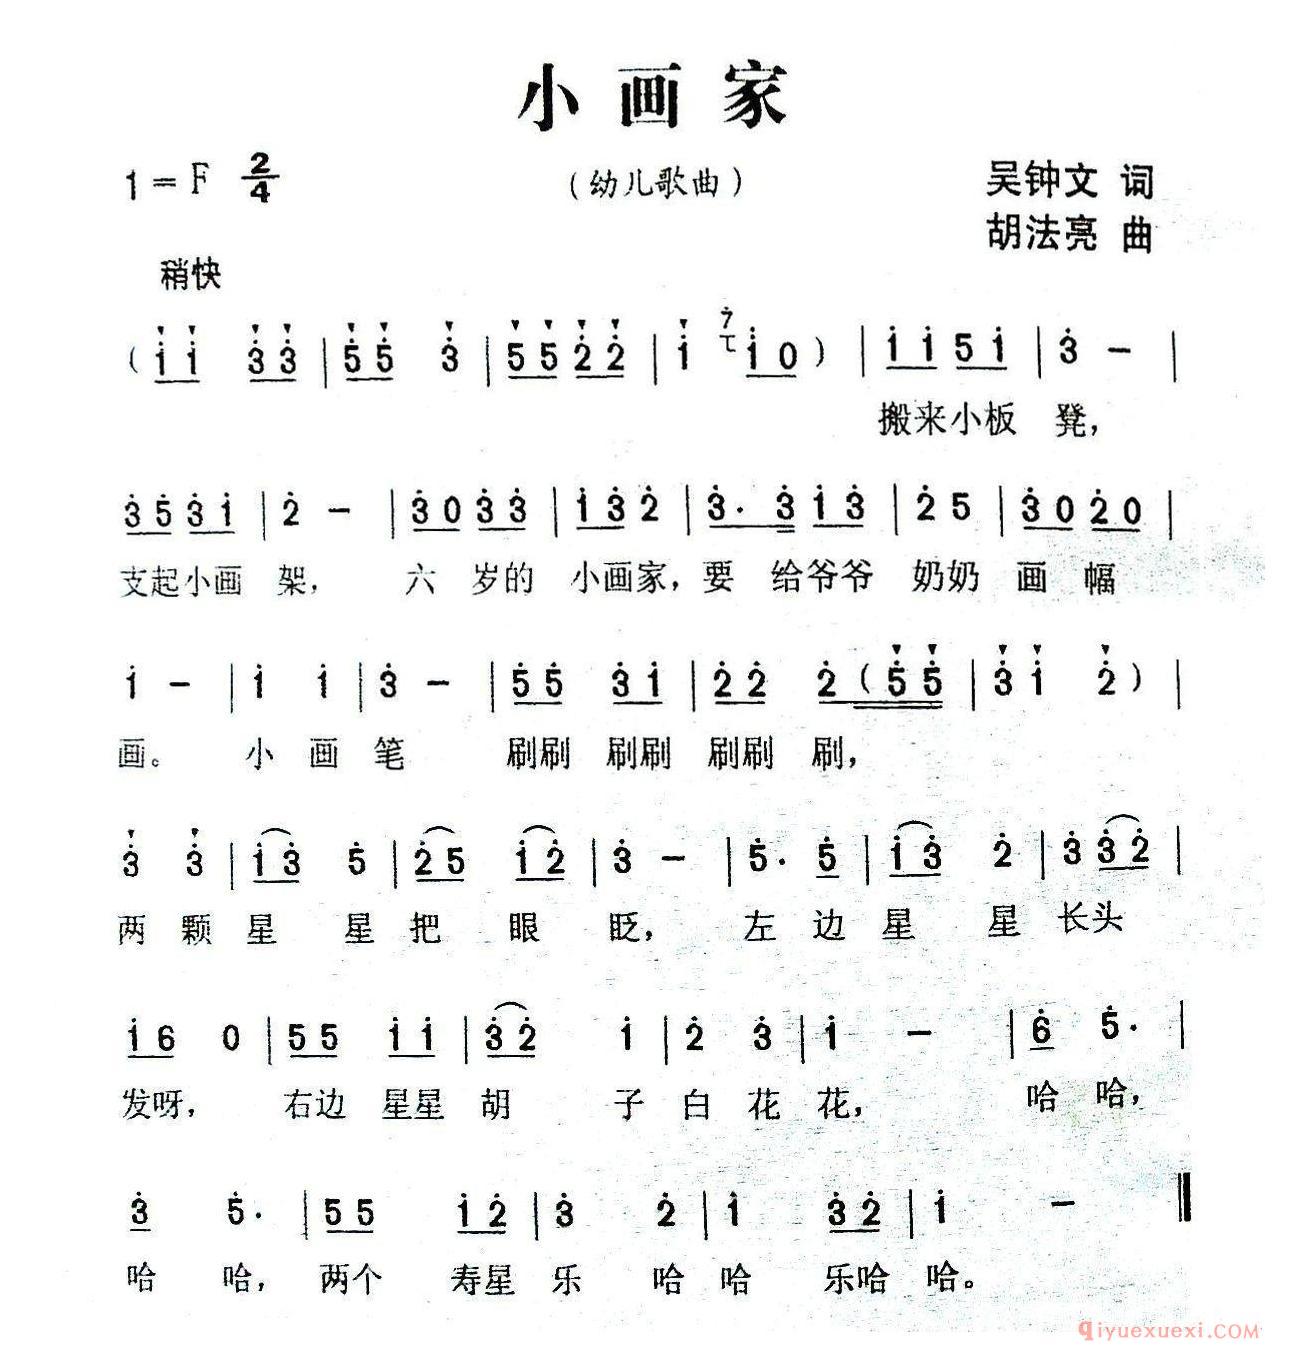 小画家
1=F 2/4
（幼儿歌曲）
吴钟文 词
胡法亮 曲
稍快
( i̇ i̇ 3̇ 3̇ | 5̇ 5̇ 3̇ | 5 5 2̇ 2̇ | i̇ i̇ 0 ) | i̇ i̇ 5 i̇ | 3̇ – |
搬来小板 凳，
3̇ 5̇ 3̇ i̇ | 2̇ – | 3̇ 0 3̇ 3̇ | i̇ 3̇ 2̇ | 3̇. 3̇ i̇ 3̇ | 2̇ 5 | 3̇ 0 2̇ 0 |
支起小画 架， 六 岁的 小画家，要 给爷爷 奶奶 画 幅
i̇ – | i̇ i̇ | 3̇ – | 5̇ 5̇ 3̇ i̇ | 2̇ 2̇ 2̇ ( 5̇ 5̇ | 3̇ i̇ 2̇ ) |
画。 小 画 笔 刷刷 刷刷 刷刷 刷，
3̇ 3̇ | i̇ 3̇ 5̇ | 2̇ 5 i̇ 2̇ | 3̇ – | 5̇. 5̇ | i̇ 3̇ 2̇ | 3̇ 3̇ 2̇ |
两 颗 星 星 把 眼 眨， 左 边 星 星 长头
i̇ 6 0 | 5 5 i̇ i̇ | 3̇ 2̇ i̇ | 2̇ 3̇ | i̇ – | 6̇ 5̇. |
发呀， 右边 星星 胡 子 白 花 花， 哈 哈，
3̇ 5̇. | 5 5 i̇ 2̇ | 3̇ 2̇ | i̇ 3̇ 2̇ | i̇ – ‖
哈 哈， 两个 寿星 乐 哈 哈 乐哈 哈。
qiyuexuexi.COM